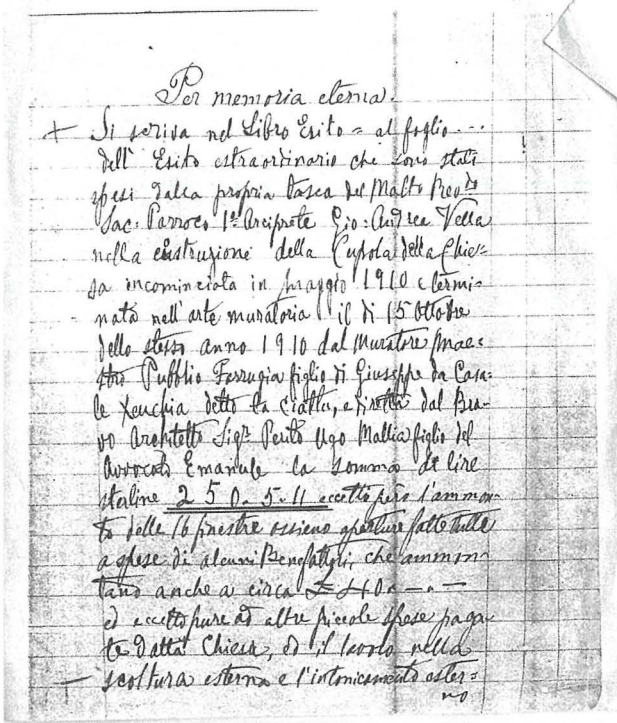 Per memoria eterna.
+ Si scriva nel Libro Esito = al foglio ...
dell' Esito estraordinario che sono stati
spesi dalla propria tasca del Molto Revdo
Sac: Parroco 1º Arciprete Gio: Andrea Vella
nella costruzione della Cupola della Chie=
sa incominciata in maggio 1910 e termi=
nata nell'arte muratoria il di 15 Ottobre
dello stesso anno 1910 dal Muratore Mae=
stro Pubblio Farrugia figlio di Giuseppe da Casa=
le Xeuchia detto ta, e diretta dal Bra=
vo Architetto Sigr. Perito Ugo Mallia figlio del
Avvocato Emanuele la somma di lire
sterline 250.5.11 eccetto però l'ammon=
to delle 16 finestre ossieno aperture fatte tutte
a spese di alcuni Benefattori, che ammon=
tano anche a circa £ 40 " — " —
ed eccetto pure ad altre piccole spese paga=
te dalla Chiesa, ed il lavoro nella
— scoltura esterna e l'intonicamento ester=
no